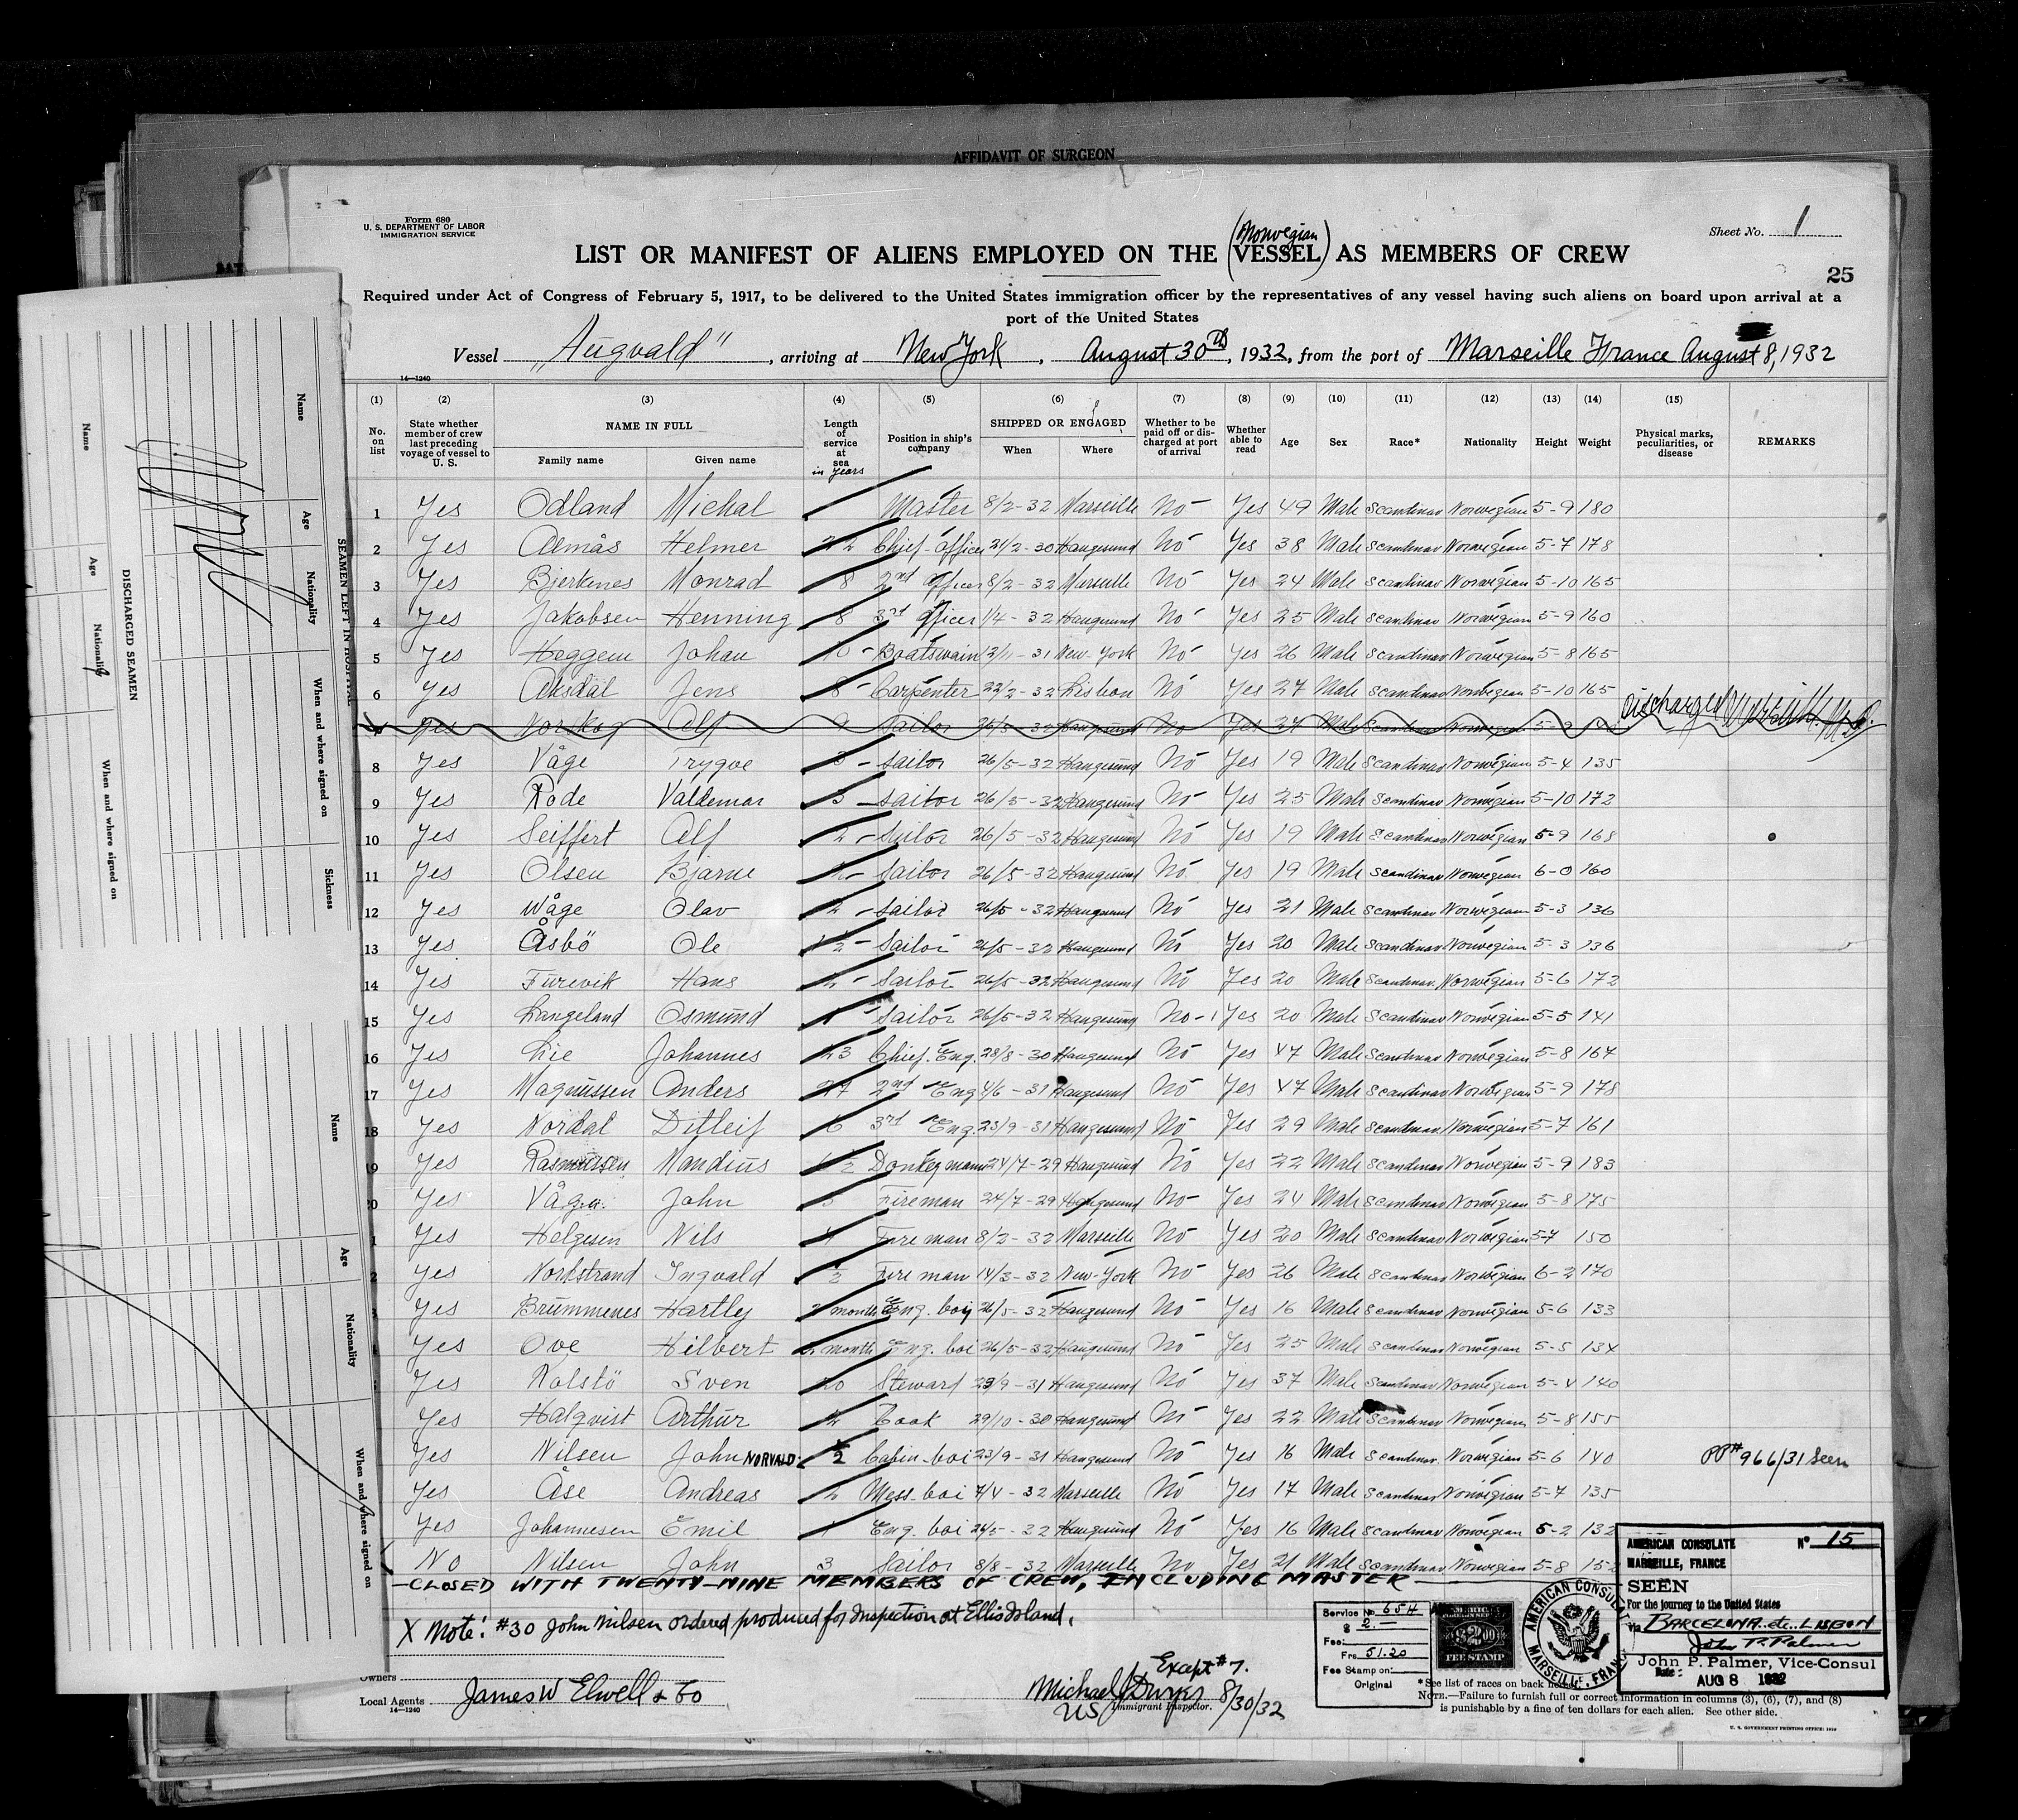 AFFIDAVIT OF SURGEON
Form 680
U. S. DEPARTMENT OF LABOR
IMMIGRATION SERVICE
Sheet No. 1
(Norwegian
LIST OR MANIFEST OF ALIENS EMPLOYED ON THE VESSEL) AS MEMBERS OF CREW
25
Required under Act of Congress of February 5, 1917, to be delivered to the United States immigration officer by the representatives of any vessel having such aliens on board upon arrival at a
port of the United States
Vessel „Augvald", arriving at New York, August 30th, 1932, from the port of Marseille France August 8, 1932
14—1240
(1) (2) (3) (4) (5) (6) (7) (8) (9) (10) (11) (12) (13) (14) (15)
No. on list
State whether member of crew last preceding voyage of vessel to U. S.
NAME IN FULL
Family name Given name
Length of service at sea in years
Position in ship's company
SHIPPED OR ENGAGED
When Where
Whether to be paid off or discharged at port of arrival
Whether able to read
Age
Sex
Race*
Nationality
Height
Weight
Physical marks, peculiarities, or disease
REMARKS
1 Yes Odland Michal Master 8/2-32 Marseille No Yes 49 Male Scandinav Norwegian 5-9 180
2 Yes Almås Helmer 22 Chief-officer 21/2-30 Haugesund No Yes 38 Male Scandinav Norwegian 5-7 178
3 Yes Bjerkenes Monrad 8 2nd officer 8/2-32 Marseille No Yes 24 Male Scandinav Norwegian 5-10 165
4 Yes Jakobsen Henning 8 3rd officer 1/4-32 Haugesund No Yes 25 Male Scandinav Norwegian 5-9 160
5 Yes Heggem Johan 10 Boatswain New-York No Yes 26 Male Scandinav Norwegian 5-8 165
6 Yes Aksdal Jens 8 Carpenter 22/2-32 Lisbon No Yes 27 Male Scandinav Norwegian 5-10 165
Yes Norskog Alf 9 Sailor 26/5-32 Haugesund No Yes 27 Male Scandinav Norwegian 5-9 Discharged
8 Yes Våge Trygve 3 Sailor 26/5-32 Haugesund No Yes 19 Male Scandinav Norwegian 5-4 135
9 Yes Rode Valdemar 5 Sailor 26/5-32 Haugesund No Yes 25 Male Scandinav Norwegian 5-10 172
10 Yes Seiffert Alf 2 Sailor 26/5-32 Haugesund No Yes 19 Male Scandinav Norwegian 5-9 168
11 Yes Olsen Bjarne 2 Sailor 26/5-32 Haugesund No Yes 19 Male Scandinav Norwegian 6-0 160
12 Yes Wåge Olav 2 Sailor 26/5-32 Haugesund No Yes 21 Male Scandinav Norwegian 5-3 136
13 Yes Åsbö Ole 1½ Sailor 26/5-32 Haugesund No Yes 20 Male Scandinav Norwegian 5-3 136
14 Yes Furevik Hans 2 Sailor 26/5-32 Haugesund No Yes 20 Male Scandinav Norwegian 5-6 172
15 Yes Langeland Osmund 1 Sailor 26/5-32 Haugesund No Yes 20 Male Scandinav Norwegian 5-5 141
16 Yes Lie Johannes 23 Chief. Eng. 28/8-30 Haugesund No Yes 47 Male Scandinav Norwegian 5-8 167
17 Yes Magnussen Anders 27 2nd Eng 4/6-31 Haugesund No Yes 47 Male Scandinav Norwegian 5-9 178
18 Yes Nordal Ditleif 6 3rd Eng. 23/9-31 Haugesund No Yes 29 Male Scandinav Norwegian 5-7 161
19 Yes Rasmussen Nandius Donkey mann 24/7-29 Haugesund No Yes 22 Male Scandinav Norwegian 5-9 183
20 Yes Våga John 5 Fireman 24/7-29 Haugesund No Yes 24 Male Scandinav Norwegian 5-8 175
1 Yes Helgesen Nils 4 Fireman 8/2-32 Marseille No Yes 20 Male Scandinav Norwegian 5-7 150
2 Yes Nordstrand Ingvald Fireman 14/3-32 New-York No Yes 26 Male Scandinav Norwegian 6-2 170
3 Yes Brummenes Hartley 2 month Eng. boy 26/5-32 Haugesund No Yes 16 Male Scandinav Norwegian 5-6 133
Yes Ove Hilbert 2 month Eng. boi 26/5-32 Haugesund No Yes 25 Male Scandinav Norwegian 5-5 134
Yes Rolstö Sven 20 Steward 23/9-31 Haugesund No Yes 37 Male Scandinav Norwegian 5-4 140
Yes Halqvist Arthur Cook 29/10-30 Haugesund No Yes 22 Male Scandinav Norwegian 5-8 155
Yes Nilsen John NORVALD. ½ Cabin-boi 23/9-31 Haugesund No Yes 16 Male Scandinav Norwegian 5-6 140 PP# 966/31 Seen
Yes Åse Andreas 2 Mess-boi 7/4-32 Marseille No Yes 17 Male Scandinav Norwegian 5-7 135
Yes Johannesen Emil 1 Eng. boi 26/5-32 Haugesund No Yes 16 Male Scandinav Norwegian 5-2 132
No Nilsen John 3 Sailor 8/8-32 Marseille No Yes 21 Male Scandinav Norwegian 5-8 152
—CLOSED WITH TWENTY-NINE MEMBERS OF CREW, INCLUDING MASTER—
X Note: #30 John Nilsen ordered produced for Inspection at Ellis Island.
Owners
Local Agents James W Elwell & Co
14—1240
Except #7.
Michael J Dwyer 8/30/32
US Immigrant Inspector.
Service No. 654
$ 2.—
Fee:
Frs 51.20
Fee Stamp on:
Original
$2.00
FEE STAMP
AMERICAN CONSULATE
MARSEILLE, FRANCE
AMERICAN CONSULATE No 15
MARSEILLE, FRANCE
SEEN
For the journey to the United States
Via BARCELONA etc. LISBON
John P. Palmer
John P. Palmer, Vice-Consul
Date: AUG 8 1932
*See list of races on back hereof.
NOTE.—Failure to furnish full or correct information in columns (3), (6), (7), and (8)
is punishable by a fine of ten dollars for each alien. See other side.
U. S. GOVERNMENT PRINTING OFFICE: 1929
SEAMEN LEFT IN HOSPITAL
Name Age Nationality When and where signed on Sickness
DISCHARGED SEAMEN
Name Age Nationality When and where signed on
Name Age Nationality When and where signed on